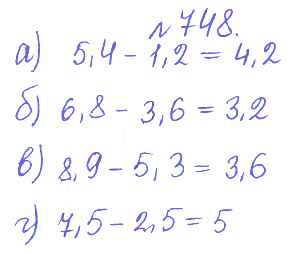 № 748.
а) 5,4 - 1,2 = 4,2
б) 6,8 - 3,6 = 3,2
в) 8,9 - 5,3 = 3,6
г) 7,5 - 2,5 = 5